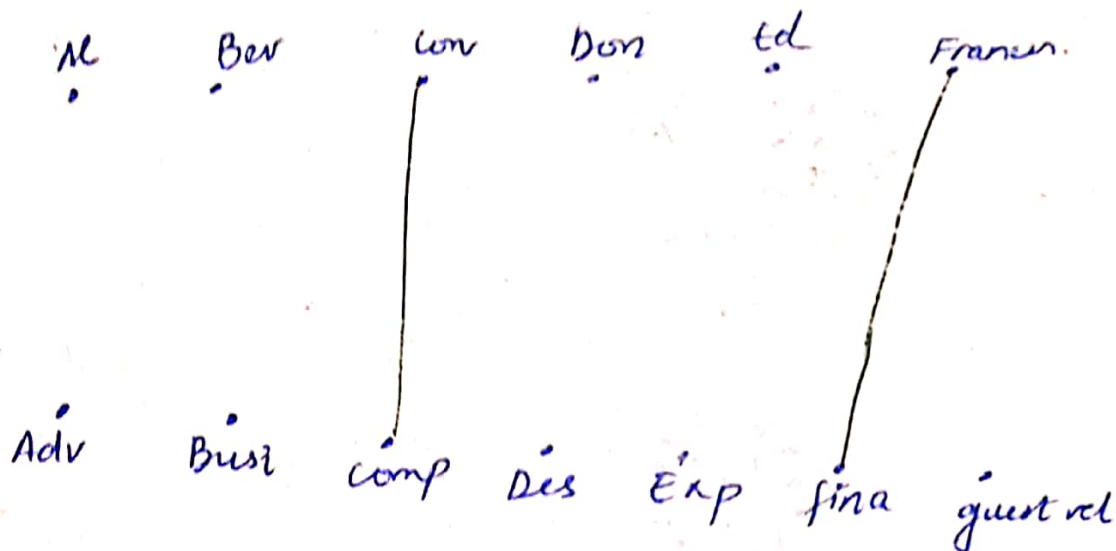 Al Bev Con Don Ed Francin.
Adv Busi Comp Des Exp fina guest rel